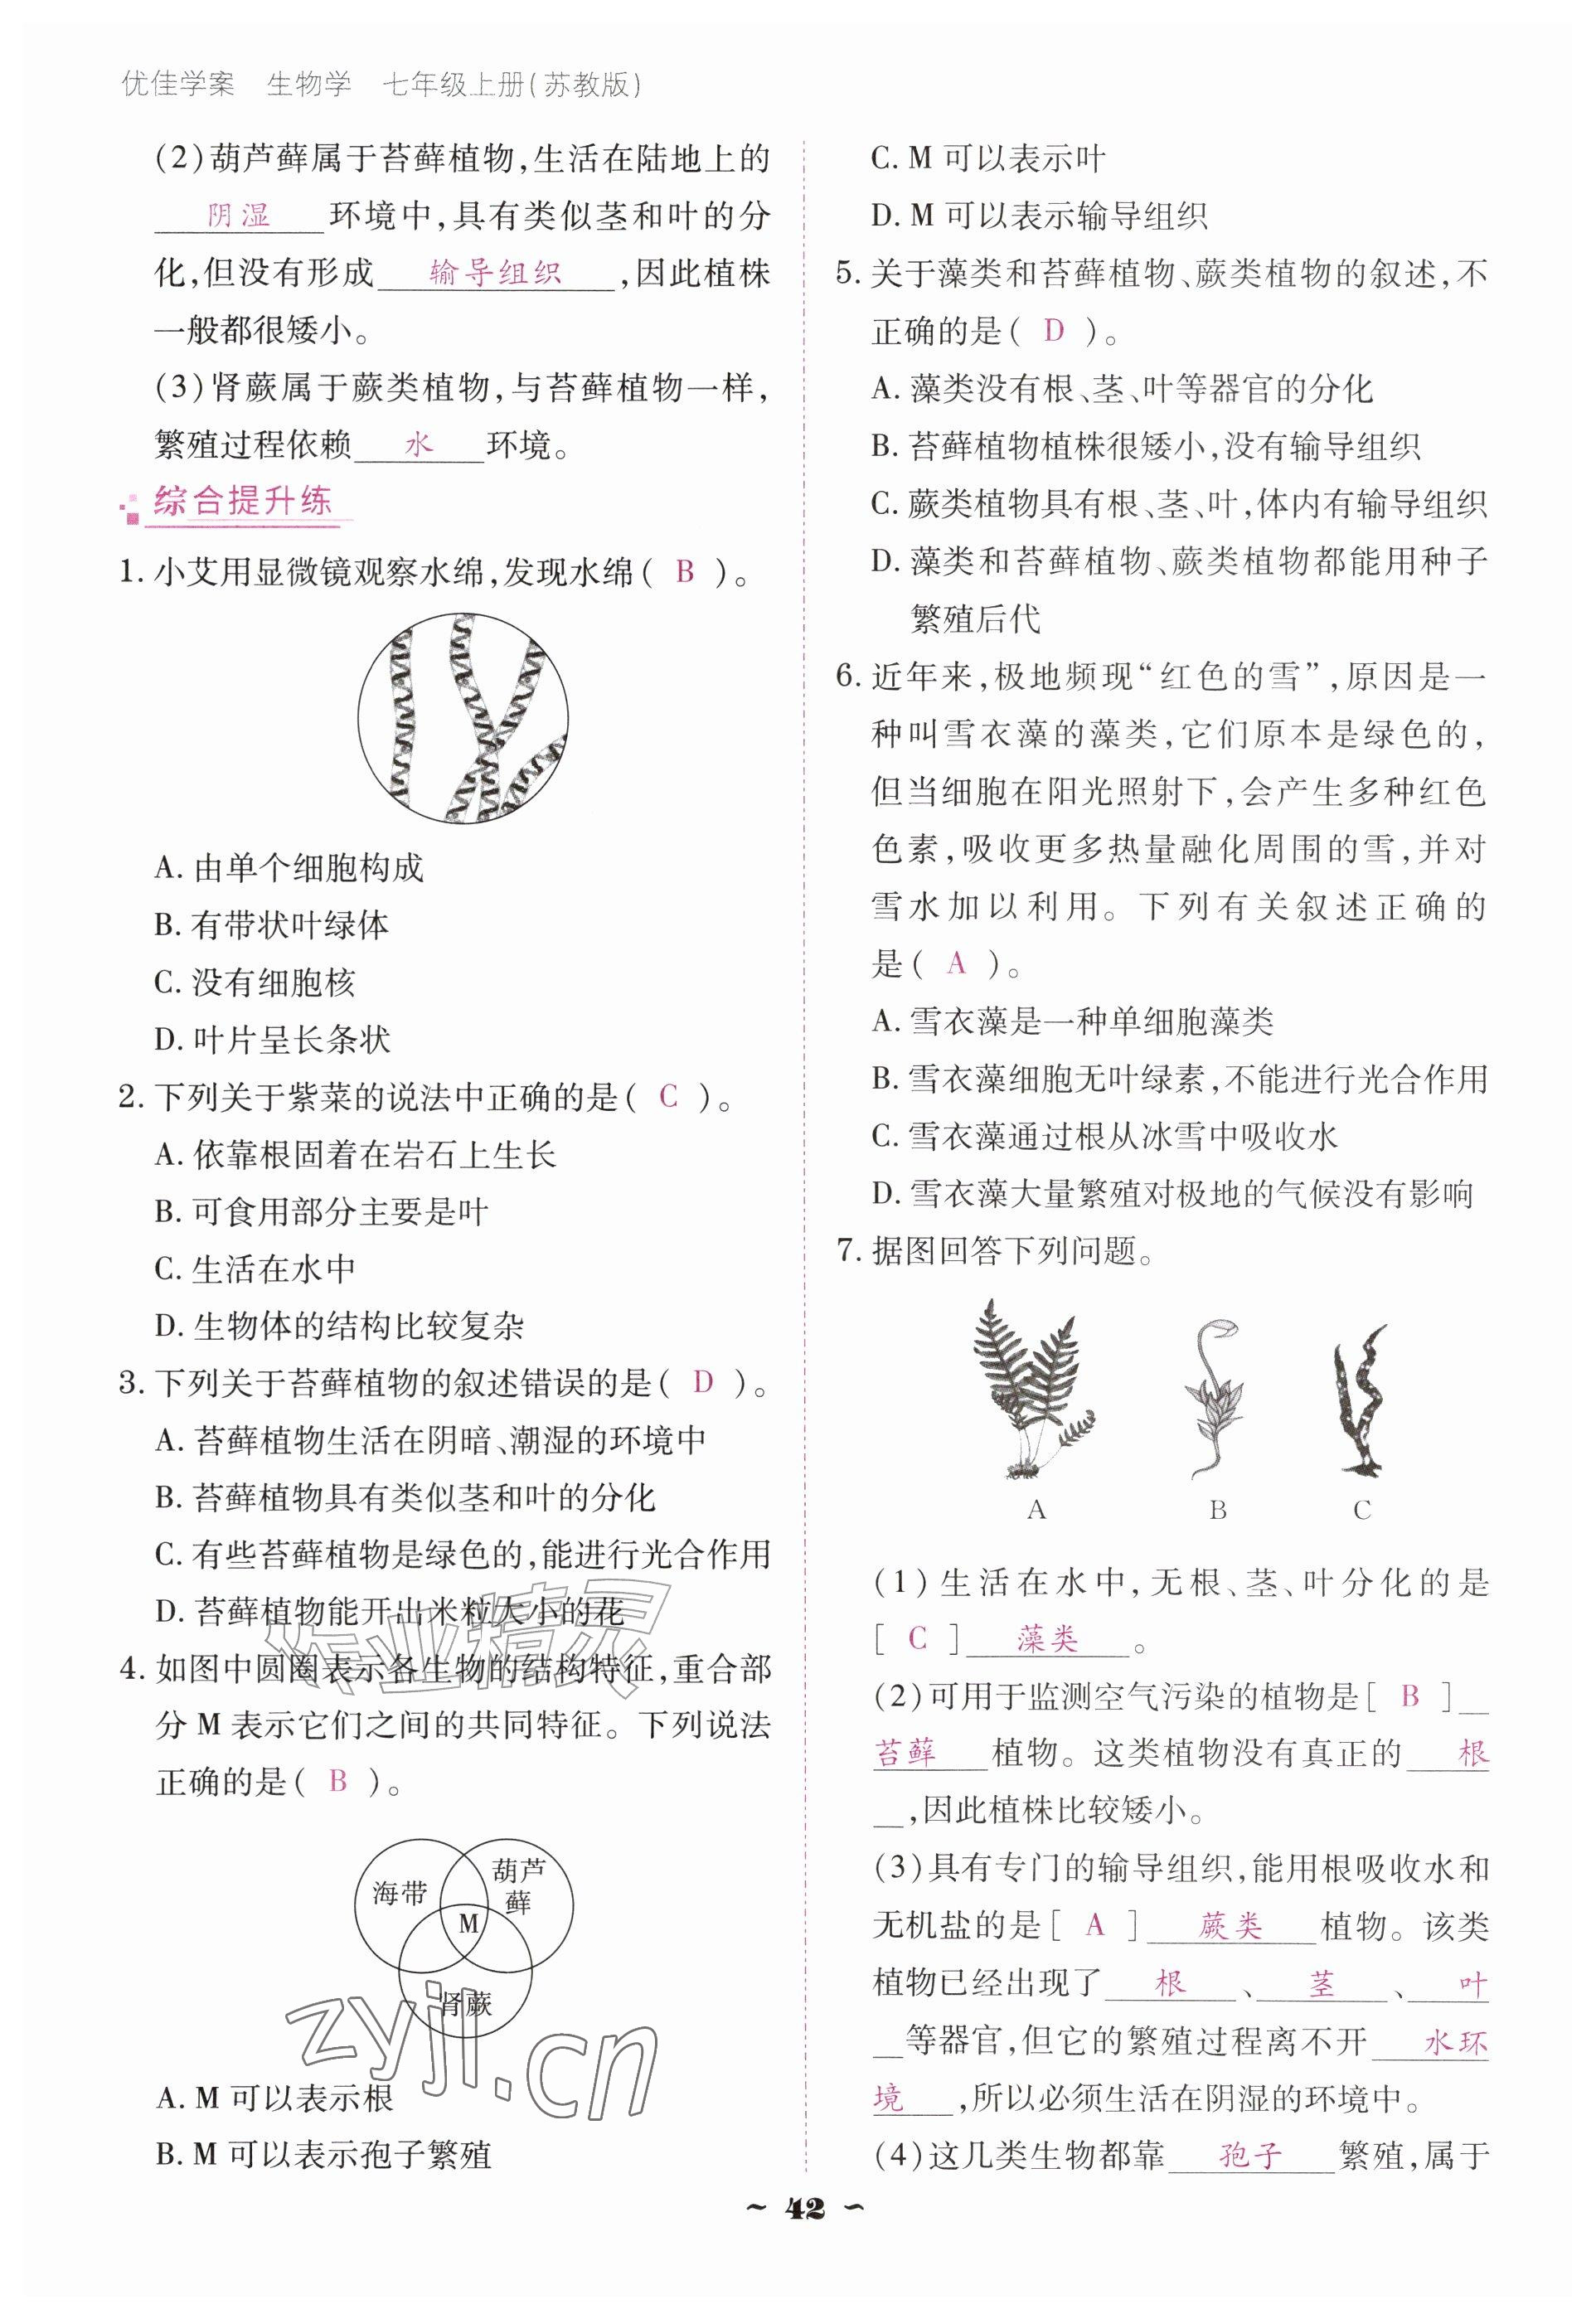 优佳学案　生物学　七年级上册(苏教版)
(2)葫芦藓属于苔藓植物,生活在陆地上的
阴湿 环境中,具有类似茎和叶的分
化,但没有形成 输导组织 ,因此植株
一般都很矮小。
(3)肾蕨属于蕨类植物,与苔藓植物一样,
繁殖过程依赖 水 环境。
综合提升练
1. 小艾用显微镜观察水绵,发现水绵( B )。
A. 由单个细胞构成
B. 有带状叶绿体
C. 没有细胞核
D. 叶片呈长条状
2. 下列关于紫菜的说法中正确的是( C )。
A. 依靠根固着在岩石上生长
B. 可食用部分主要是叶
C. 生活在水中
D. 生物体的结构比较复杂
3. 下列关于苔藓植物的叙述错误的是( D )。
A. 苔藓植物生活在阴暗、潮湿的环境中
B. 苔藓植物具有类似茎和叶的分化
C. 有些苔藓植物是绿色的,能进行光合作用
D. 苔藓植物能开出米粒大小的花
作业精灵
4. 如图中圆圈表示各生物的结构特征,重合部
分 M 表示它们之间的共同特征。下列说法
正确的是( B )。
海带
葫芦
藓
M
肾蕨
zyjl.cn
A. M 可以表示根
B. M 可以表示孢子繁殖
C. M 可以表示叶
D. M 可以表示输导组织
5. 关于藻类和苔藓植物、蕨类植物的叙述,不
正确的是( D )。
A. 藻类没有根、茎、叶等器官的分化
B. 苔藓植物植株很矮小,没有输导组织
C. 蕨类植物具有根、茎、叶,体内有输导组织
D. 藻类和苔藓植物、蕨类植物都能用种子
繁殖后代
6. 近年来,极地频现“红色的雪”,原因是一
种叫雪衣藻的藻类,它们原本是绿色的,
但当细胞在阳光照射下,会产生多种红色
色素,吸收更多热量融化周围的雪,并对
雪水加以利用。下列有关叙述正确的
是( A )。
A. 雪衣藻是一种单细胞藻类
B. 雪衣藻细胞无叶绿素,不能进行光合作用
C. 雪衣藻通过根从冰雪中吸收水
D. 雪衣藻大量繁殖对极地的气候没有影响
7. 据图回答下列问题。
A B C
(1)生活在水中,无根、茎、叶分化的是
[ C ] 藻类 。
(2)可用于监测空气污染的植物是[ B ]
苔藓 植物。这类植物没有真正的 根
,因此植株比较矮小。
(3)具有专门的输导组织,能用根吸收水和
无机盐的是[ A ] 蕨类 植物。该类
植物已经出现了 根 、 茎 、 叶
等器官,但它的繁殖过程离不开 水环
境 ,所以必须生活在阴湿的环境中。
(4)这几类生物都靠 孢子 繁殖,属于
~ 42 ~